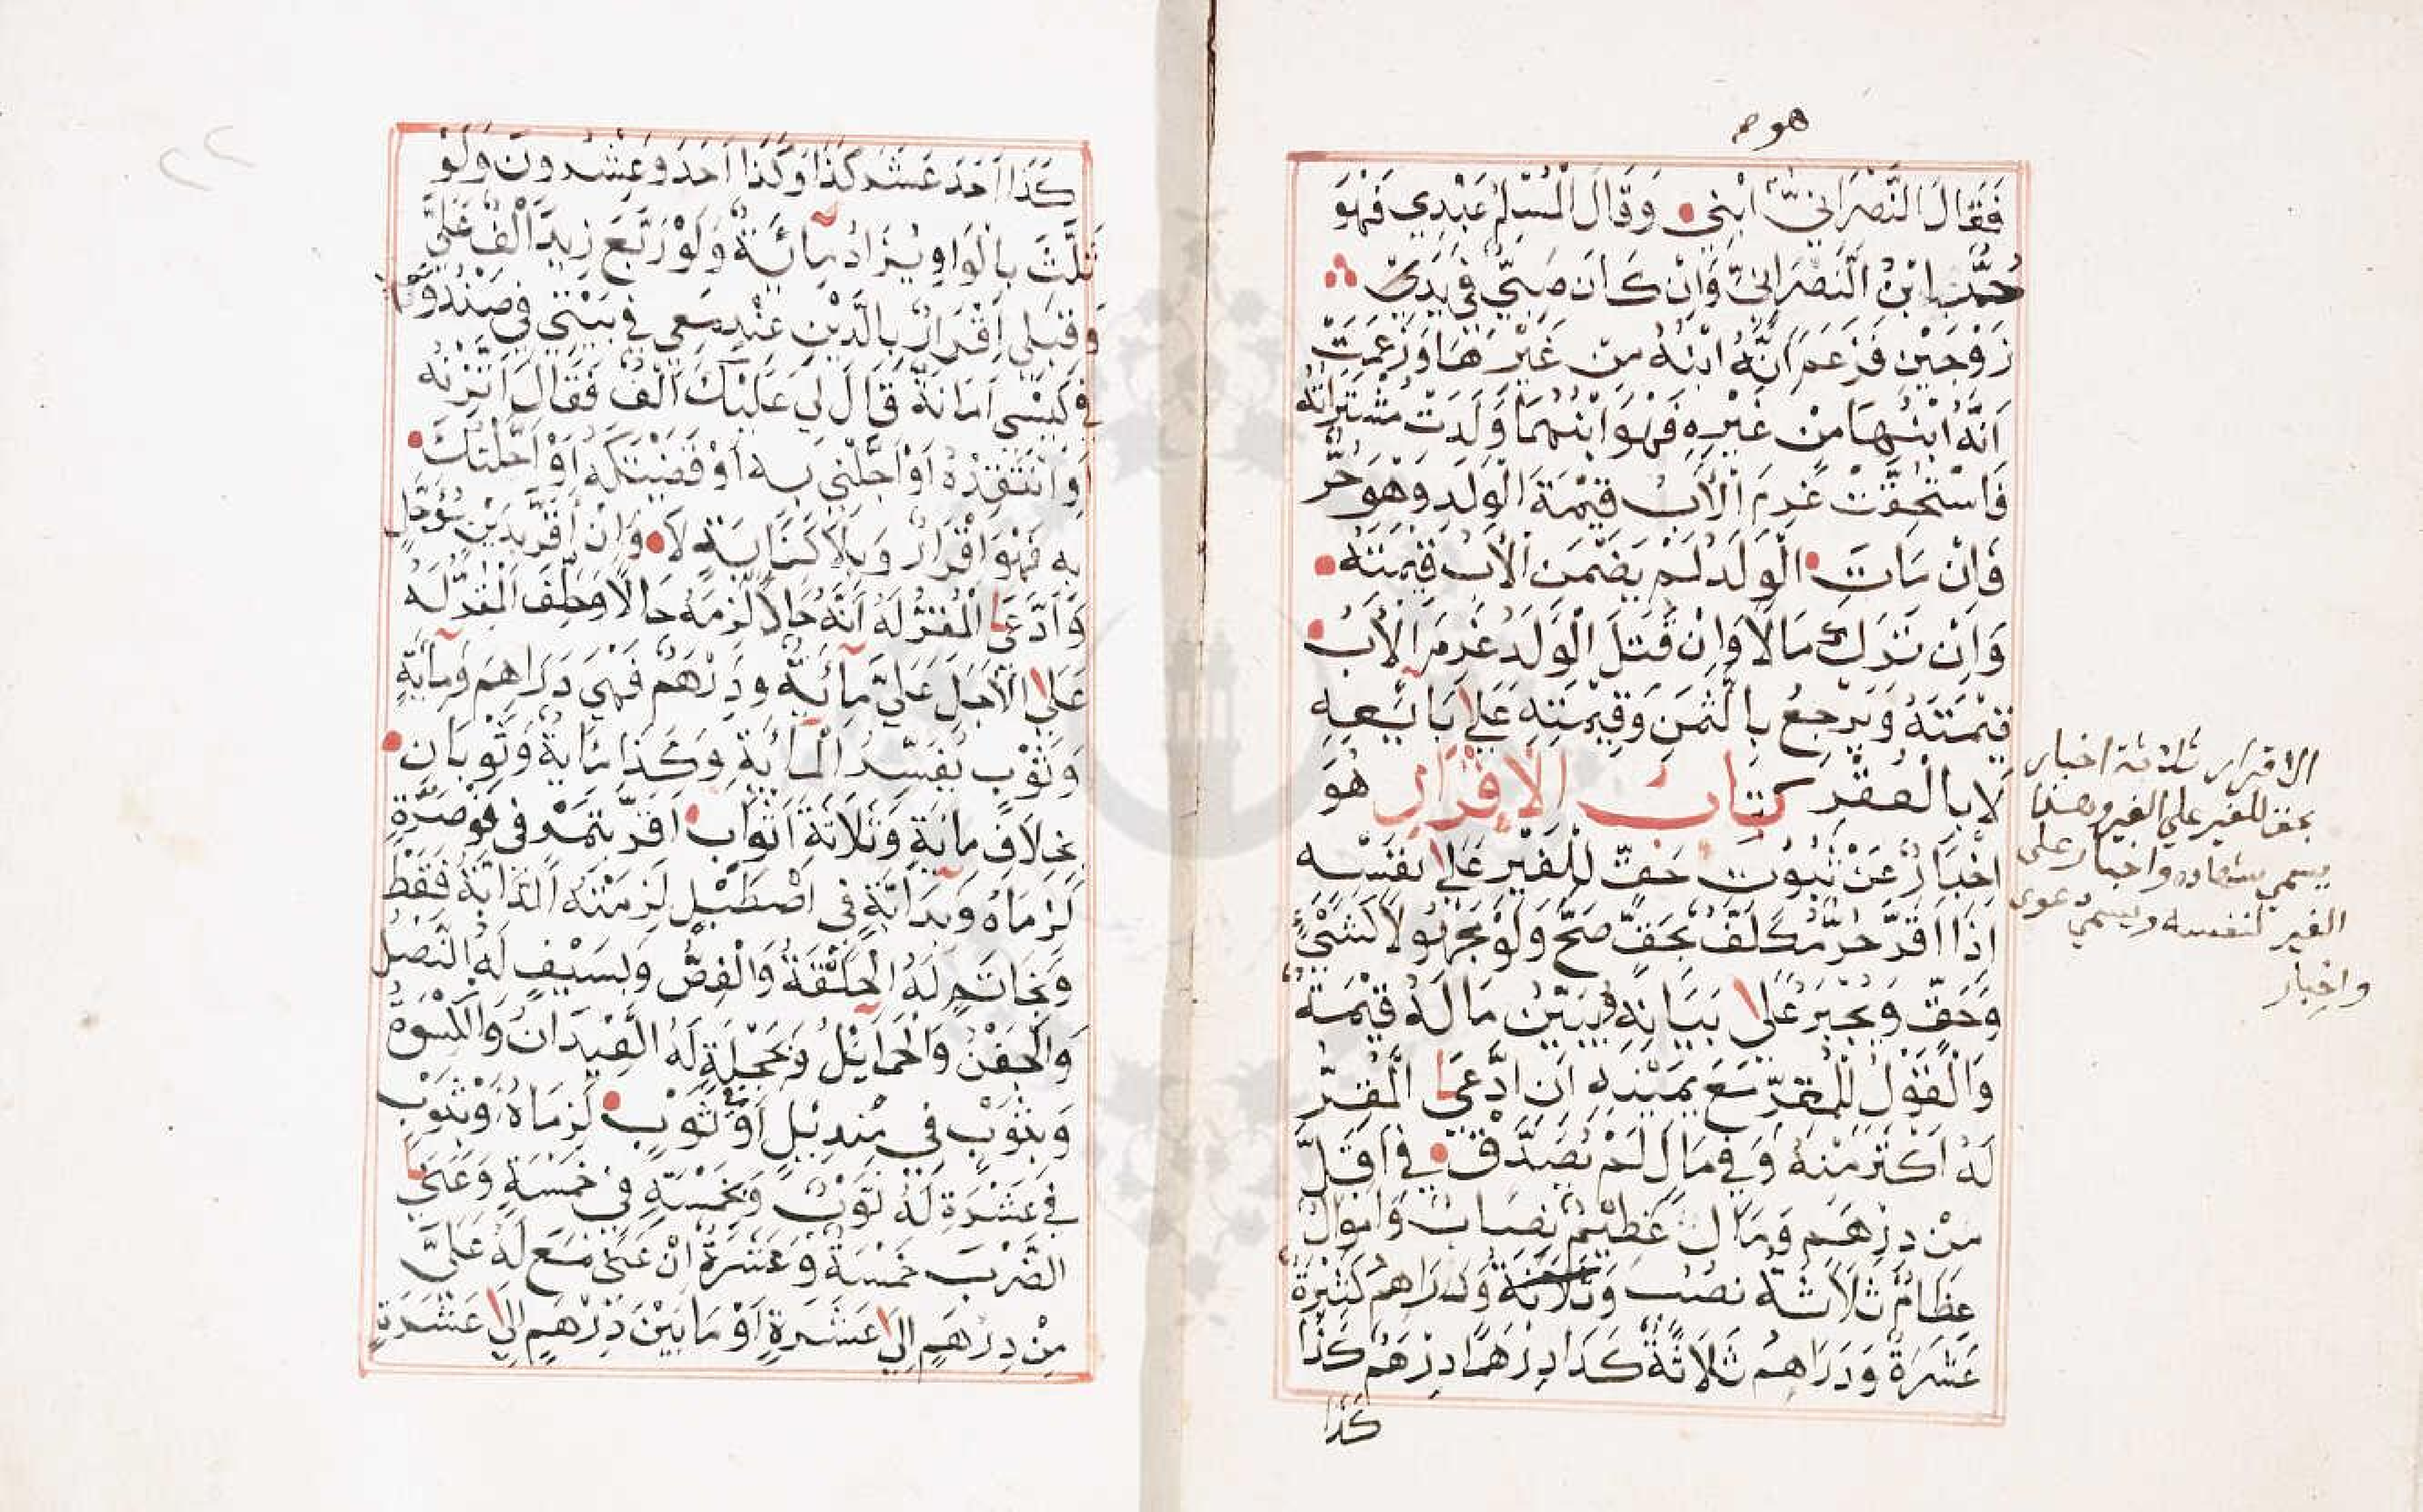 هوم
فَقَالَ النَّصْرَانِيُّ ابْنِي وَقَالَ الْمُسْلِمُ عَبْدِي فَهُوَ
حُرٌّ ابْنُ النَّصْرَانِيِّ وَاِنْ كَانَ صَبِيٌّ فِي يَدَيْ
زَوْجَيْنِ فَزَعَمَ اَنَّهُ ابْنُهُ مِنْ غَيْرِهَا وَزَعَمَتْ
اَنَّهُ ابْنُهَا مِنْ غَيْرِهِ فَهُوَ ابْنُهُمَا وَلَدَتْ مُشْتَرَاتُهُ
فَاسْتُحِقَّتْ غَرِمَ الْأَبُ قِيْمَةَ الْوَلَدِ وَهُوَ حُرٌّ
وَاِنْ مَاتَ الْوَلَدُ لَمْ يَضْمَنِ الْأَبُ قِيْمَتَهُ
وَاِنْ تَرَكَ مَالًا وَاِنْ قُتِلَ الْوَلَدُ غَرِمَ الْأَبُ
قِيْمَتَهُ وَيَرْجِعُ بِالثَّمَنِ وَقِيْمَتِهِ عَلَى بَائِعِهِ
لَا بِالْعُقْرِ كِتَابُ الْإِقْرَارِ هُوَ
اِخْبَارٌ عَنْ ثُبُوتِ حَقٍّ لِلْغَيْرِ عَلَى نَفْسِهِ
اِذَا اَقَرَّ حُرٌّ مُكَلَّفٌ بِحَقٍّ صَحَّ وَلَوْ مَجْهُولًا كَشَيْءٍ
وَحَقٍّ وَيُجْبَرُ عَلَى بَيَانِهِ وَيُبَيِّنُ مَا لَهُ قِيْمَةٌ
وَالْقَوْلُ لِلْمُقِرِّ مَعَ يَمِيْنِهِ اِنِ ادَّعَى الْمُقَرُّ
لَهُ اَكْثَرَ مِنْهُ وَفِي مَالٍ لَمْ يُصَدَّقْ فِي اَقَلَّ
مِنْ دِرْهَمٍ وَمَالٌ عَظِيْمٌ نِصَابٌ وَاَمْوَالٌ
عِظَامٌ ثَلَاثَةُ نُصُبٍ وَدَرَاهِمُ كَثِيْرَةٌ
عَشَرَةٌ وَدَرَاهِمُ ثَلَاثَةٌ كَذَا دِرْهَمًا دِرْهَمٌ كَذَا
كَذَا
الاقرار ثلاثة اخبار
بحق للغير على الغير وهذا
يسمى شهادة واخبار على
الغير لنفسه ويسمي دعوى
واخبار
كَذَا اَحَدَ عَشَرَ كَذَا وَكَذَا اَحَدَ وَعِشْرُونَ وَلَوْ
ثَلَّثَ بِالْوَاوِ يُزَادُ مِائَةٌ وَلَوْ رَبَّعَ زِيْدَ اَلْفٌ عَلَيَّ
وَقِبَلِي اِقْرَارٌ بِالدَّيْنِ عِنْدِي مَعِي فِي بَيْتِي فِي صَنْدُوقِي
فِي كِيْسِي اَمَانَةٌ قَالَ لِي عَلَيْكَ اَلْفٌ فَقَالَ اَتَّزِنْهُ
وَانْتَقِدْهُ اَوْ اَجِّلْنِي بِهِ اَوْ قَضَيْتُكَهُ اَوْ اَحَلْتُكَ
بِهِ فَهُوَ اِقْرَارٌ وَبِلَا كِنَايَةٍ لَا وَاِنْ اَقَرَّ بِدَيْنٍ مُؤَجَّلٍ
وَادَّعَى الْمُقَرُّ لَهُ اَنَّهُ حَالٌّ لَزِمَهُ حَالًا وَحُلِّفَ الْمُقَرُّ لَهُ
عَلَى الْأَجَلِ عَلَيَّ مِائَةٌ وَدِرْهَمٌ فَهِيَ دَرَاهِمُ وَمِائَةٌ
وَثَوْبٌ يُفَسِّرُ الْمِائَةَ وَكَذَا مِائَةٌ وَثَوْبَانِ
بِخِلَافِ مِائَةٍ وَثَلَاثَةُ اَثْوَابٍ اَقَرَّ بِتَمْرٍ فِي قَوْصَرَّةٍ
لَزِمَاهُ وَبِدَابَّةٍ فِي اِصْطَبْلٍ لَزِمَتْهُ الدَّابَّةُ فَقَطْ
وَبِخَاتَمٍ لَهُ الْحَلْقَةُ وَالْفَصُّ وَبِسَيْفٍ لَهُ النَّصْلُ
وَالْجَفْنُ وَالْحَمَائِلُ وَبِحَجَلَةٍ لَهُ الْعِيْدَانُ وَالْكِسْوَةُ
وَبِثَوْبٍ فِي مَنْدِيْلٍ اَوْ ثَوْبٍ لَزِمَاهُ وَبِثَوْبٍ
فِي عَشْرَةٍ لَهُ ثَوْبٌ وَبِخَمْسَةٍ فِي خَمْسَةٍ وَعَنَى
الضَّرْبَ خَمْسَةٌ وَعَشَرَةٌ اِنْ عَنَى مَعَ لَهُ عَلَيَّ
مِنْ دِرْهَمٍ اِلَى عَشَرَةٍ اَوْ مَا بَيْنَ دِرْهَمٍ اِلَى عَشَرَةٍ